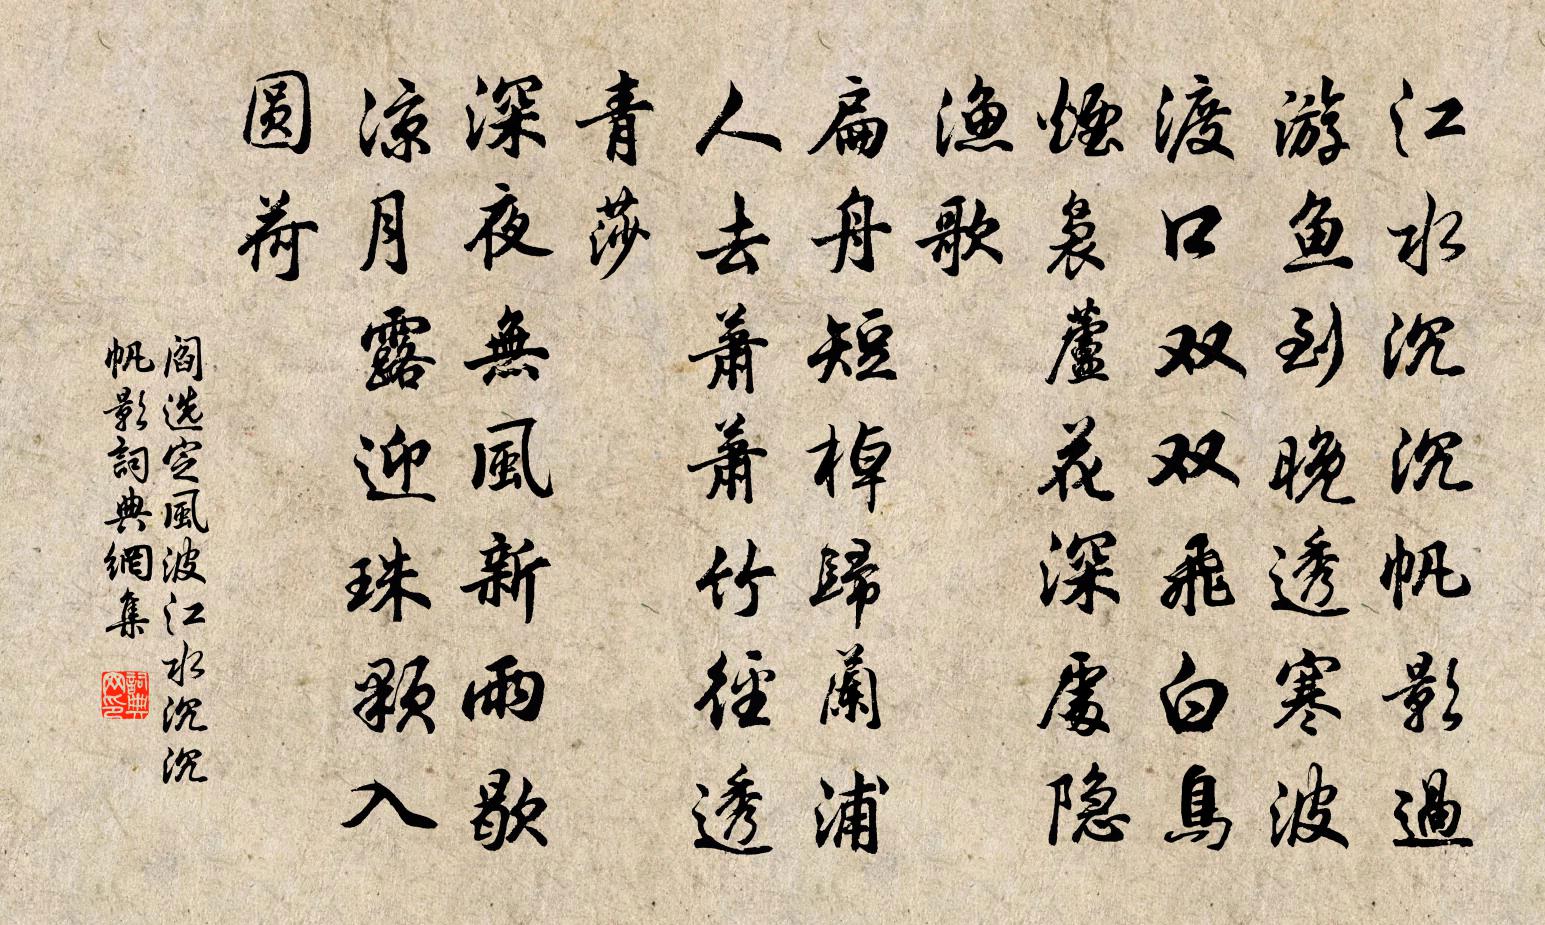 江水沉沉帆影過
游魚到晚透寒波
渡口双双飛白鳥
煙裊蘆花深處隐
漁歌
扁舟短棹歸蘭浦
人去蕭蕭竹徑透
青莎
深夜無風新雨歇
凉月露迎珠顆入
圓荷
閻选定風波江水沉沉
帆影詞典網集
詞典
网印